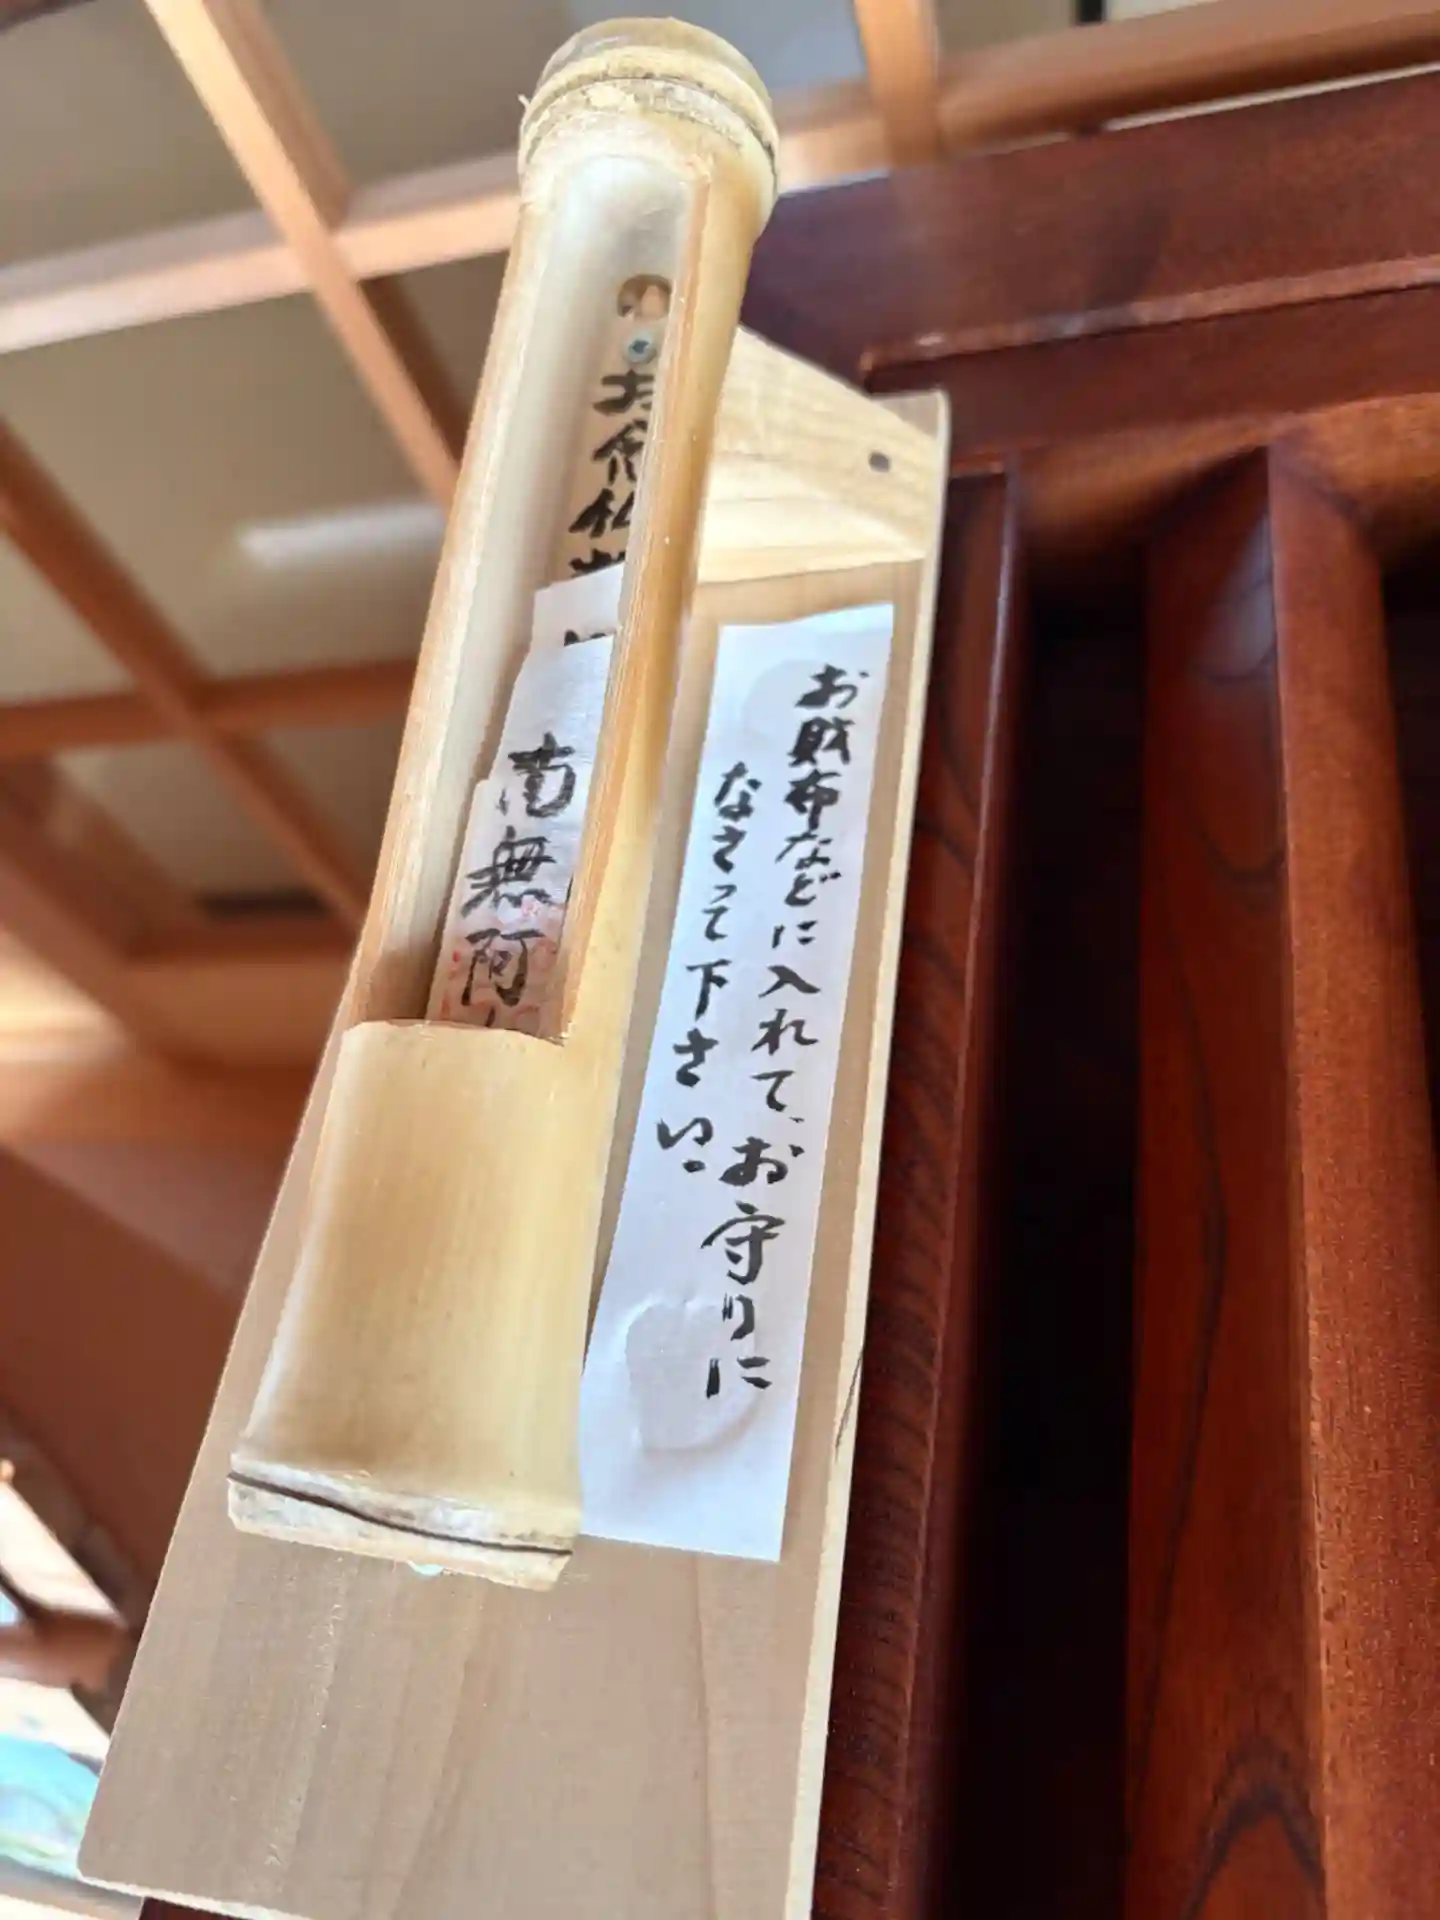 お財布などに入れて、お守りに
なさって下さい。
お念仏
南無阿